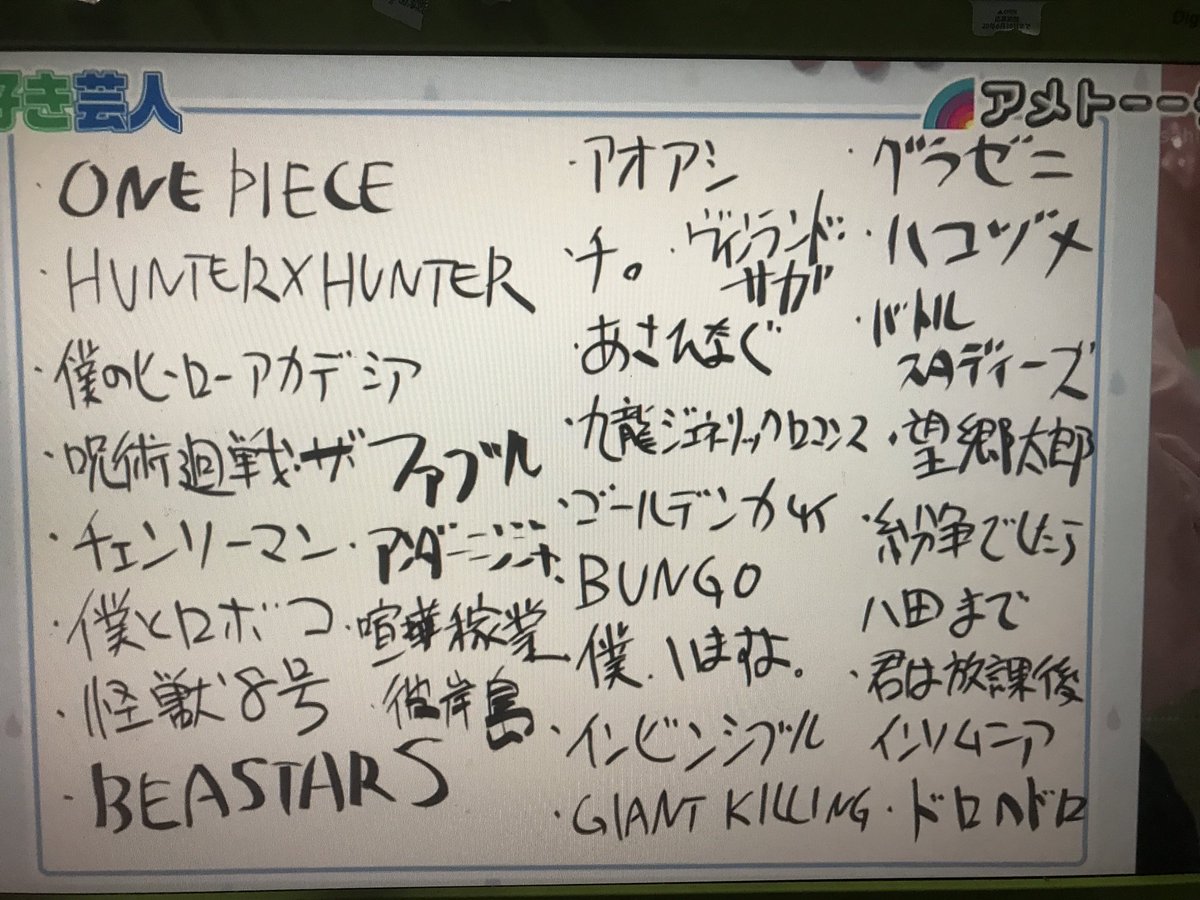 好き芸人
アメトーーク
・ONE PIECE
・HUNTER×HUNTER
・僕のヒーローアカデミア
・呪術廻戦・ザファブル
・チェンソーマン・アンダーニンジャ
・僕とロボコ・喧嘩稼業
・怪獣8号・彼岸島
・BEASTARS
・アオアシ
・チ。・ヴィンランド
サガ
・あさひなぐ
・九龍ジェネリックロマンス
・ゴールデンカムイ
・BUNGO
・僕、はまな。
・インビンシブル
・GIANT KILLING
・グラゼニ
・ハコヅメ
・バトル
スタディーズ
・望郷太郎
・紛争でしたら
八田まで
・君は放課後
インソムニア
・ドロヘドロ